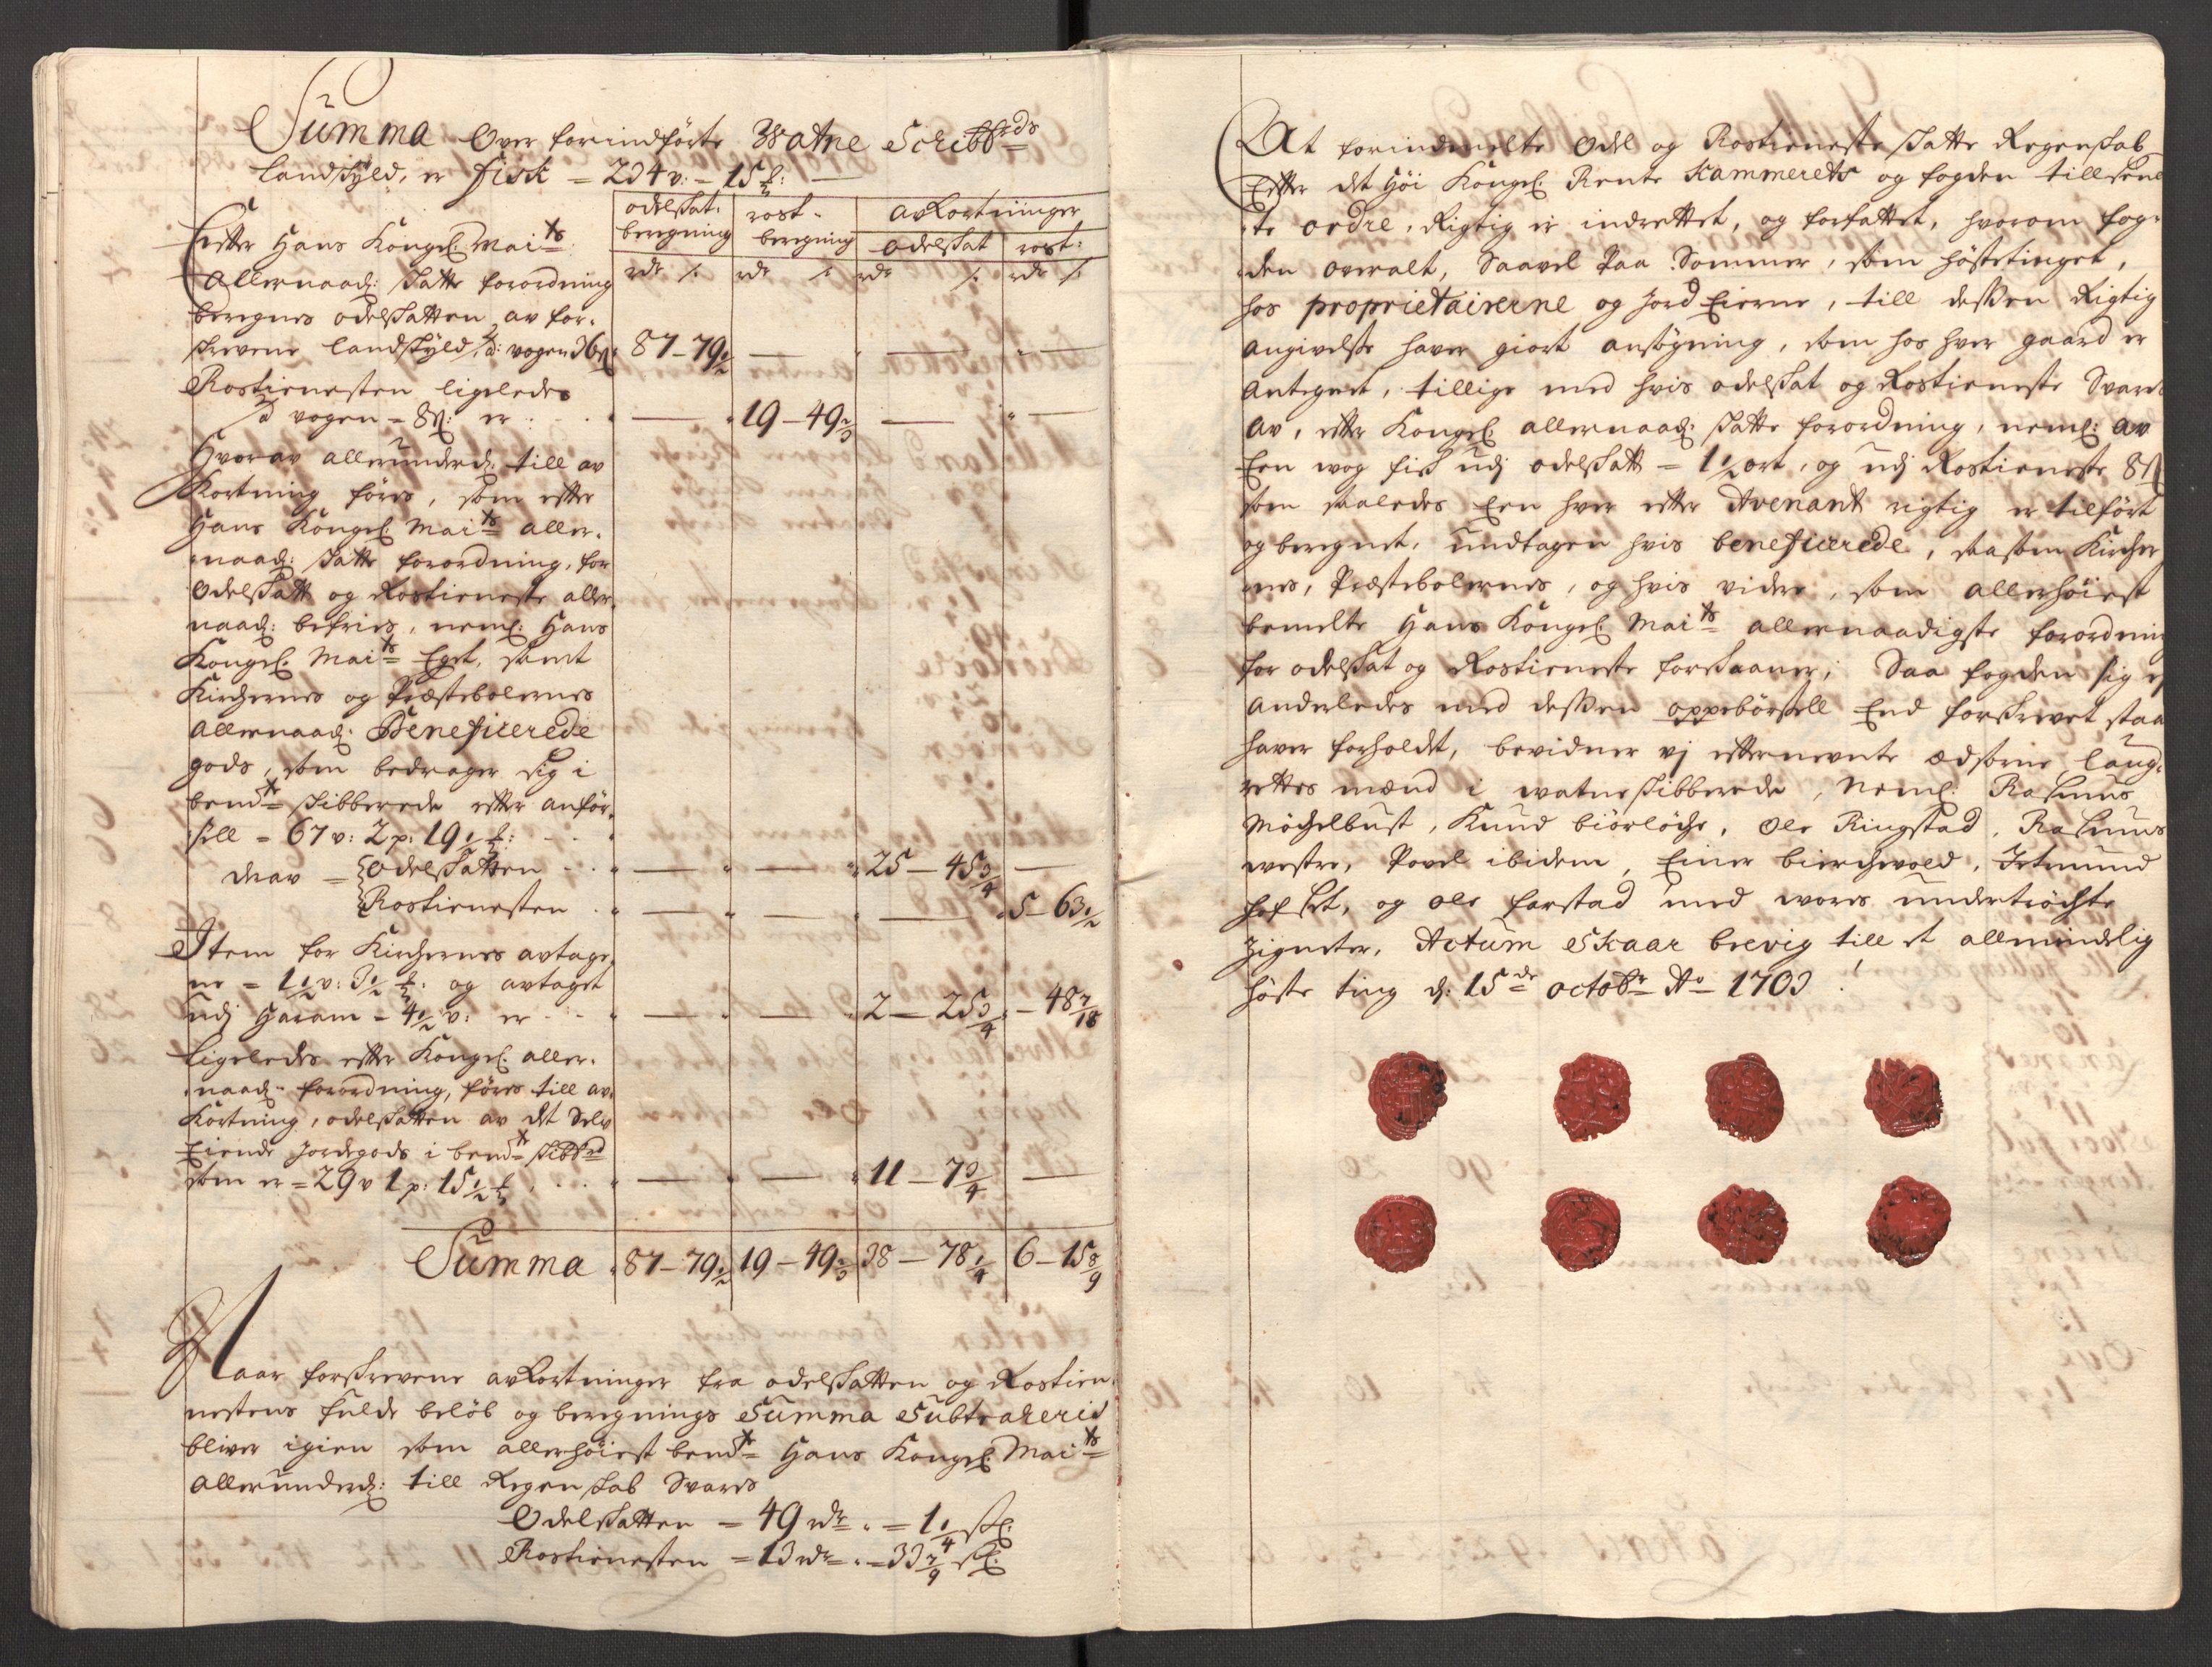 Summa Over forindførte Watne Schibbrds
Landskyld, er fisk = 234 v: = 15 ℔: —
odelskat. beregning
rost- beregning
avkortninger
odelskat rost:
rdr ſ: rdr ſ: rdr ſ: rdr ſ:
Efter Hans Kongel: Maits
Allernaad: Skatte forordning
beregnes odelskatten av for-
skrevene landskyld, à: vogen 36 ſ: 87 – 79 1/2 — — —
Rostienesten ligeledes
à vogen = 8 ſ: er : — 19 – 49 2/3 — —
Hvorav allerunderd: till av
Kortning føres, som efter
Hans Kongel: Maits aller-
naad: Skatte forordning, for
odelskatt og Rostieneste aller
naad: befries, neml: Hans
Kongel: Maits Eget, samt
Kirchernes og Præstebolernes
allernaad: Beneficerede
gods, som bedrager sig i
bemte skibberede efter anfør-
sell = 67 v: 2 p: 19 1/2 ℔: - - -
derav = odelskatten - - - — — 25 – 45 3/4 —
Rostienesten - — — — 5 – 63 1/2
Item for Kirchernes avtage-
ne = 1 1/2 v: 3 1/2 ℔: og avtaget
udj Haram = 4 1/2 v: er - - — — 2 – 25 3/4 – 48 7/18
Ligeledes efter Kongel: aller-
naad: forordning, føres till av-
Kortning, odelskatten av det Selv
Eiende Jordegods i bemte skibbrd
som er = 29 v 1 p: 15 1/2 ℔, - - - — — 11 – 7 3/4 —
Summa 87 – 79 1/2 19 – 49 2/3 38 – 78 1/4 6 – 15 8/9
Naar forskrevene avkortninger fra odelskatten og Rostie-
nestens fulde beløb og beregnings Summa Subtraherid
bliver igien som allerhøiest bemte Hans Kongel: Maits
allerunderd: till Regenskab Svares
Odelskatten = 49 rdr - = 1 1/4 sk:
Rostienesten = 13 rdr - = 33 7/9 sk:
At forindmelte Odel og Rostieneste skatte Regenskab
Efter det høi Kongel: Rente Kammerets og fogden tillsend
te ordre, Rigtig er indrettet, og forfattet, hvorom fog-
den overalt, Saavel Paa Sommer, som høstetinget,
hos proprietairerne og Jord Eierne, till dessen Rigtig
angivelse haver giort ansøgning, som hos hver gaard er
antegnet, tillige med hvis odelskat og Rostieneste Svares
av, efter Kongel: allernaad: skatte forordning, neml: av
Een wog fisk udj odelskatt = 1 1/2 ort, og udj Rostieneste 8 ſ
som saaledes Een hver efter Avenant rigtig er tilført
og beregnet, undtagen hvis beneficerede, saasom Kircher
nes, Præstebolernes, og hvis videre, som allerhøiest
bemelte Hans Kongel: Maits allernaadigste forordning
for odelskat og Rostieneste forskaaner, Saa fogden sig ej
anderledes med dessen oppebørsell End forskrevet staar
haver forholdt, bevidner vj efternevnte ædsorne laug-
rettes mænd i watne skibberede, Neml: Rasmus
Møchelbust, Knud biørløche, Ole Ringstad, Rasmus
westre, Povel ibidem, Einer bierchevold, Jetmund
helset, og Ole farstad med wores undertröchte
zigneter, Actum Skaar brevig till et allmindelig
høste ting d: 15de octobr Ao 1703